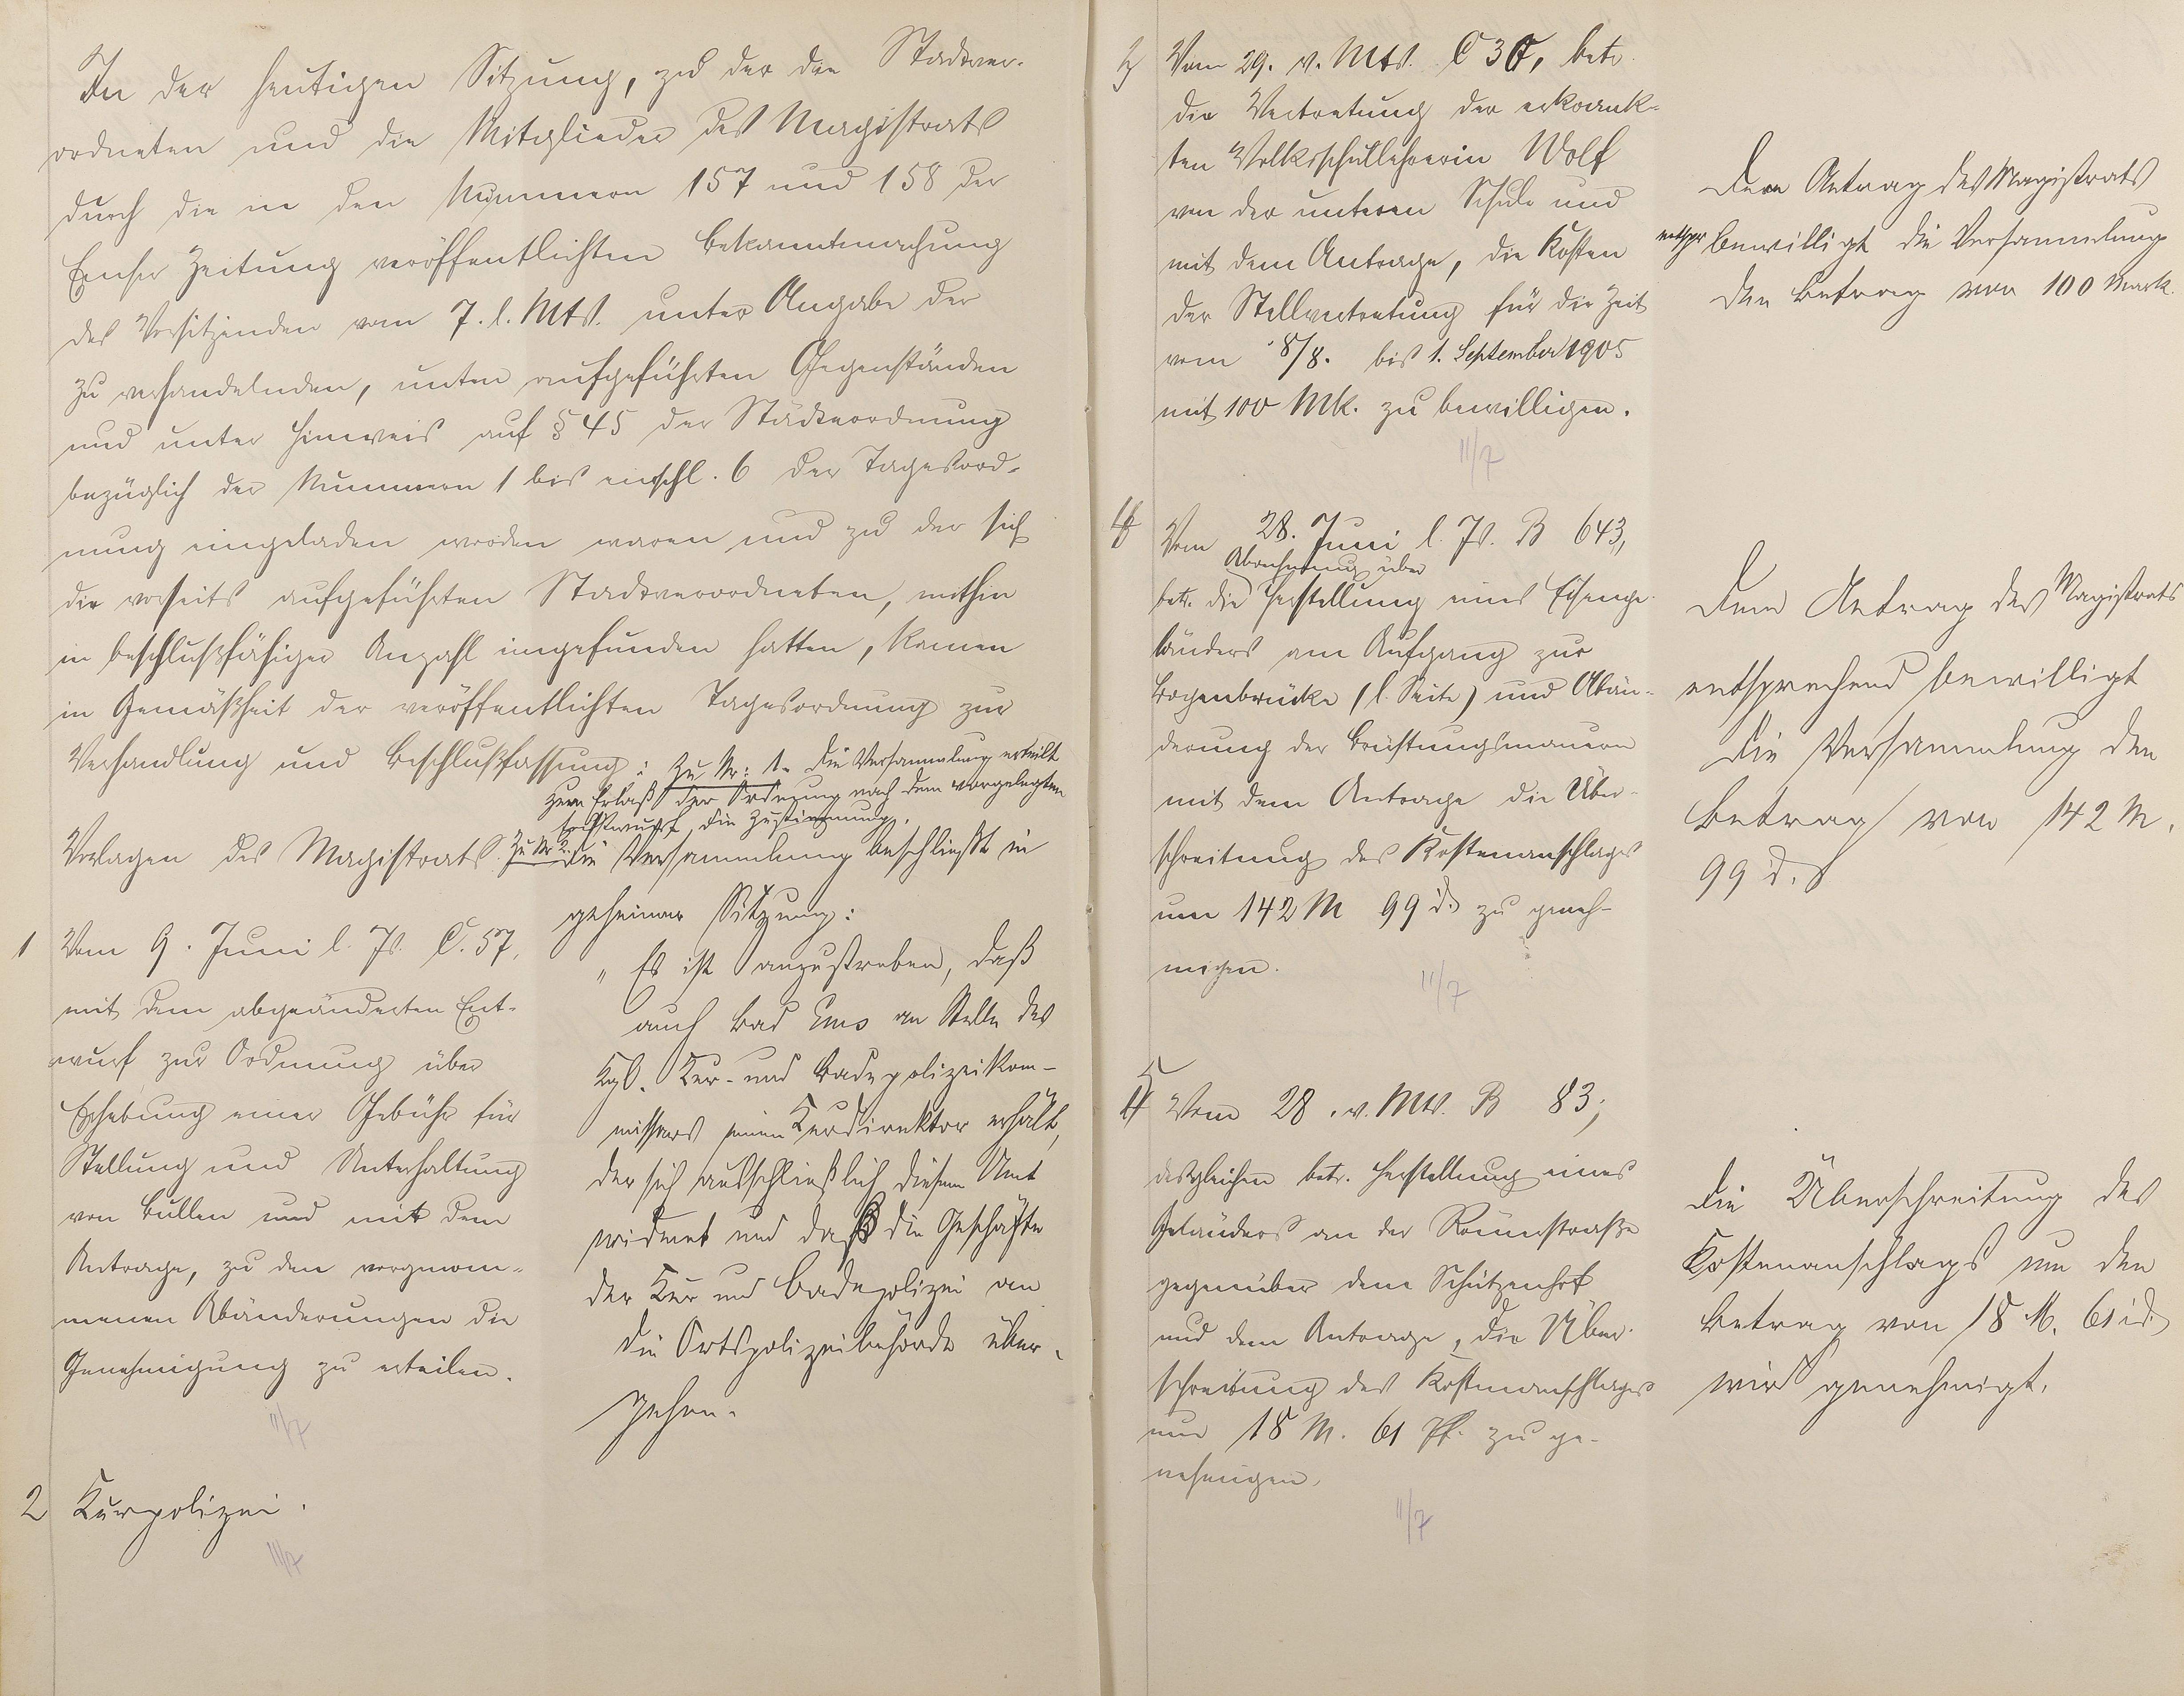 In der heutigen Sitzung, zu der die Stadtver-
ordneten und die Mitglieder des Magistrats
durch die in den Nummern 157 und 158 der
Emser Zeitung veröffentlichten Bekanntmachung
des Vorsitzenden vom 7. l. Mts. unter Angabe der
zu verhandelnden, unten aufgeführten Gegenständen
und unter Hinweis auf § 45 der Städteordnung
bezüglich der Nummern 1 bis einschl. 6 der Tagesord-
nung eingeladen worden waren und zu der sich
die vorseits aufgeführten Stadtverordneten, mithin
in beschlußfähiger Anzahl eingefunden hatten, kamen
in Gemäßheit der veröffentlichten Tagesordnung zur
Verhandlung und Beschlußfassung:
Vorlagen des Magistrats.
1 Vom 9. Juni l. Js. C. 57,
mit dem abgeänderten Ent-
wurf zur Ordnung über
Erhebung einer Gebühr für
Stellung und Unterhaltung
von Bullen und mit dem
Antrage, zu den vorgenom-
menen Abänderungen die
Genehmigung zu erteilen.
11/7
2 Kurpolizei.
11/7
Zu Nr. 1. Die Versammlung erteilt
zum Erlaß der Ordnung nach dem vorgelegten
Entwurf die Zustimmung.
Zu Nr 2. Die Versammlung beschließt in
geheimer Sitzung:
"Es ist anzustreben, daß
auch Bad Ems an Stelle des
Kgl. Kur- und Badepolizeikom-
missars einen Kurdirektor erhält,
der sich ausschließlich diesem Amt
widmet und daß die Geschäfte
der Kur und Badepolizei an
die Ortspolizeibehörde über-
gehen.
3 Vom 29. v. Mts. C 36, betr.
die Vertretung der erkrank-
ten Volksschullehrerin Wolf
von der unteren Schule und
mit dem Antrage, die Kosten
der Stellvertretung für die Zeit
vom 8/8. bis 1. September 1905
mit 100 Mk. zu bewilligen.
11/7
Dem Antrag des Magistrats
entspr bewilligt die Versammlung
den Betrag von 100 Mark.
4 Vom 28. Juni l. Js. B 643,
Abrechnung über
betr. die Herstellung eines Eisenge-
länders am Aufgang zur
Bogenbrücke (l. Seite) und Abän-
derung der Brüstungsmauern
mit dem Antrage die Über-
schreitung des Kostenanschlages
um 142 M 99 d. zu geneh-
migen.
11/7
Dem Antrag des Magistrats
entsprechend bewilligt
die Versammlung den
Betrag von 142 M.
99 d.
5 Vom 28. v. Mts. B 83;
desgleichen betr. Herstellung eines
Geländers an der Römerstraße
gegenüber dem Schützenhof
und dem Antrage, die Über-
schreitung des Kostenanschlages
um 18 M. 61 Pf. zu ge-
nehmigen.
11/7
Die Überschreitung des
Kostenanschlags um den
Betrag von 18 M. 61 d.
wird genehmigt.